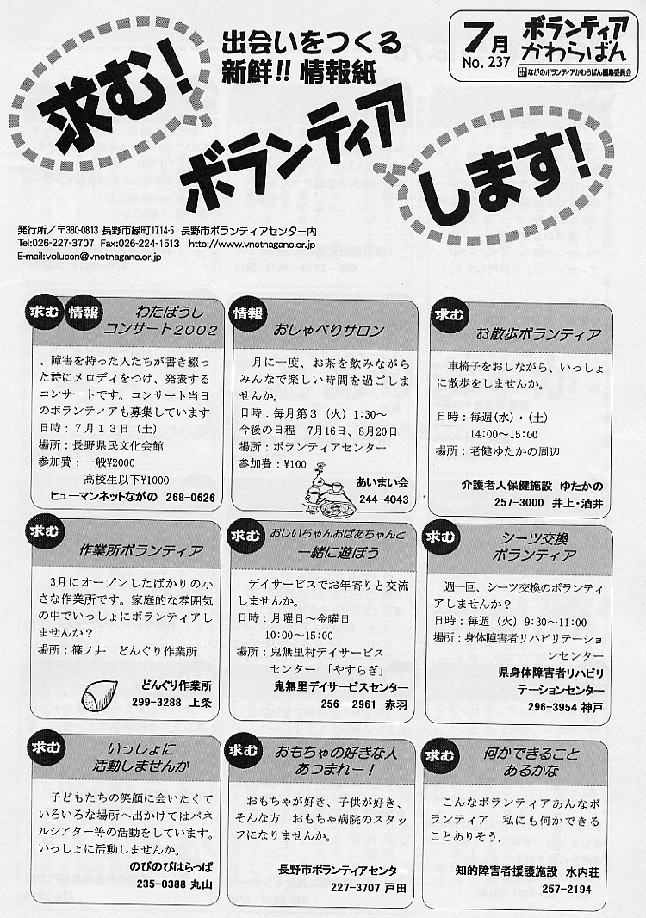 求む!
出会いをつくる
新鮮!! 情報紙
ボランティア
します!
7月
No. 237
ボランティア
かわらばん
ながのボランティアかわらばん編集委員会
発行所/〒380-0813 長野市緑町1714-5 長野市ボランティアセンター内
Tel:026-227-3707 Fax:026-224-1513 http://www.vnetnagano.or.jp
E-mail:volucen@vnetnagano.or.jp
求む 情報
わたぼうし
コンサート2002
、障害を持った人たちが書き綴っ
た詩にメロディをつけ、発表する
コンサートです。コンサート当日
のボランティアも募集しています
日時:7月13日(土)
場所:長野県民文化会館
参加費: 一般¥2000
高校生以下¥1000
ヒューマンネットながの 268-0626
情報
おしゃべりサロン
月に一度、お茶を飲みながら
みんなで楽しい時間を過ごしま
せんか。
日時:毎月第3(火)1:30~
今後の日程 7月16日、8月20日
場所:ボランティアセンター
参加費:¥100
あいまい会
244 4043
求む
お散歩ボランティア
車椅子をおしながら、いっしょ
に散歩をしませんか。
日時:毎週(水)・(土)
14:00~15:00
場所:老健ゆたかの周辺
介護老人保健施設 ゆたかの
257-3000 井上・酒井
求む
作業所ボランティア
3月にオープンしたばかりの小
さな作業所です。家庭的な雰囲気
の中でいっしょにボランティアし
ませんか?
場所:篠ノ井 どんぐり作業所
どんぐり作業所
299-3288 上条
求む
おじいちゃんおばあちゃんと
一緒に遊ぼう
デイサービスでお年寄りと交流
しませんか。
日時:月曜日~金曜日
10:00~15:00
場所:鬼無里村デイサービス
センター 「やすらぎ」
鬼無里デイサービスセンター
256 2961 赤羽
求む
シーツ交換
ボランティア
週一回、シーツ交換のボランティ
アしませんか?
日時:毎週(火)9:30~11:00
場所:身体障害者リハビリテーショ
ンセンター
県身体障害者リハビリ
テーションセンター
296-3954 神戸
求む
いっしょに
活動しませんか
子どもたちの笑顔に会いたくて
いろいろな場所へ出かけてはパネ
ルシアター等の活動をしています。
いっしょに活動しませんか。
のびのびはらっぱ
235-0388 丸山
求む
おもちゃの好きな人
あつまれー!
おもちゃが好き、子供が好き、
そんな方 おもちゃ病院のスタッ
フになりませんか。
長野市ボランティアセンタ
227-3707 戸田
求む
何かできること
あるかな
こんなボランティアあんなボ
ランティア 私にも何かできる
ことありそう.
知的障害者援護施設 水内荘
257-2194